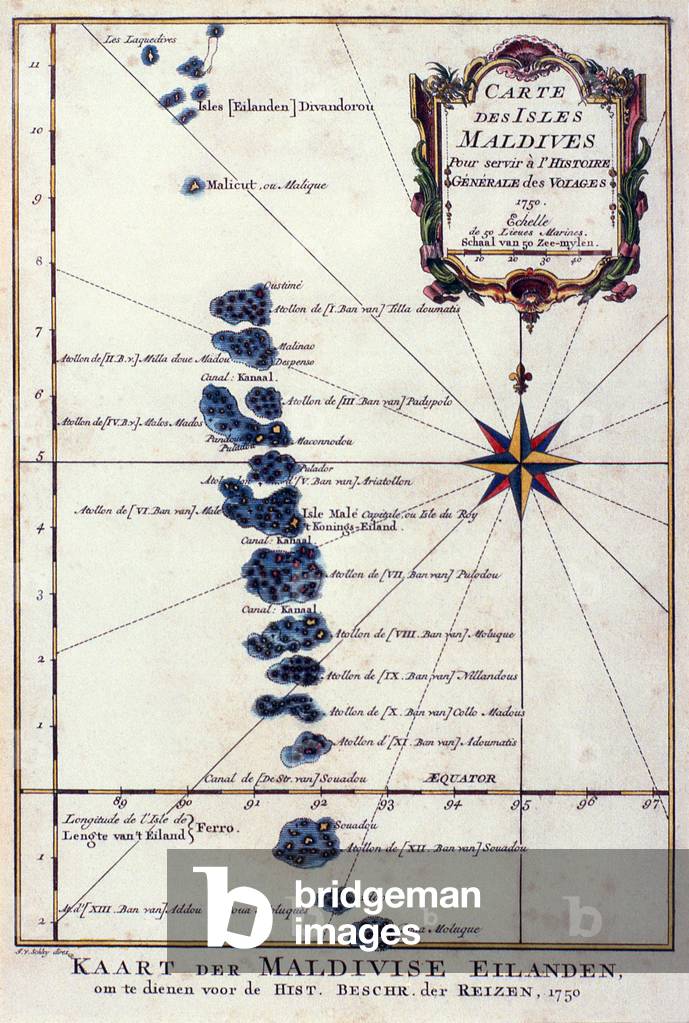 Les Laquedives
11
Isles [Eilanden] Divandorou
10
Malicut, ou Malique
9
8
CARTE
DES ISLES
MALDIVES
Pour servir à l'HISTOIRE
GÉNÉRALE des VOIAGES
1750.
Echelle
de 50 Lieues Marines.
Schaal van 50 Zee-mylen.
10 20 30 40 50
Oustimé
Atollon de [I. Ban van] Tilla doumatis
7
Malinao
Atollon de [II. B.v.] Milla doue Madou
Despenso
Canal: Kanaal.
6
Atollon de [III Ban van] Padypolo
Atollon de [IV. B.v] Malos Mados
Pandou
Pulador
Maconnodou
5
Pulador
[V. Ban van] Ariatollon
Atollon de [VI. Ban van] Male
Isle Malé Capitale, ou Isle du Roy
't Konings-Eiland.
4
Canal: Kanaal
Atollon de [VII. Ban van] Pulodou
3
Canal: Kanaal
Atollon de [VIII. Ban van] Moluque
2
Atollon de [IX. Ban van] Nillandous
Atollon de [X. Ban van] Collo Madous
1
Atollon d' [XI. Ban van] Adoumatis
Canal de [De Str. van] Souadou
ÆQUATOR
89 90 91 92 93 94 95 96 97
Longitude de l'Isle de
Lengte van't Eiland
Ferro.
Souadou
Atollon de [XII. Ban van] Souadou
1
At. d' [XIII. Ban van] Addou
oua Moluques
2
Moluque
J.V. Schley direx.
KAART DER MALDIVISE EILANDEN,
om te dienen voor de HIST. BESCHR. der REIZEN, 1750
b bridgeman
images